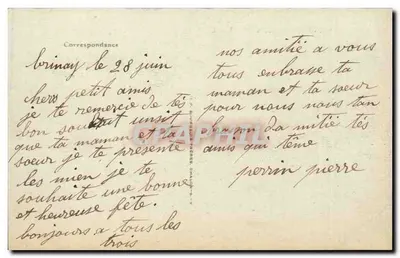 Correspondance
brinay le 28 juin
chers petit amis
je te remercie de tés
bon souhait unsit
que ta maman et ta
soeur je te présente
les mien je te
souhaite une bonne
et heureuse fête.
bonjours a tous les
trois
nos amitié a vous
tous enbrasse ta
maman et ta soeur
pour nous nous tan
da mitié tés
amis qui t'ême
perrin pierre